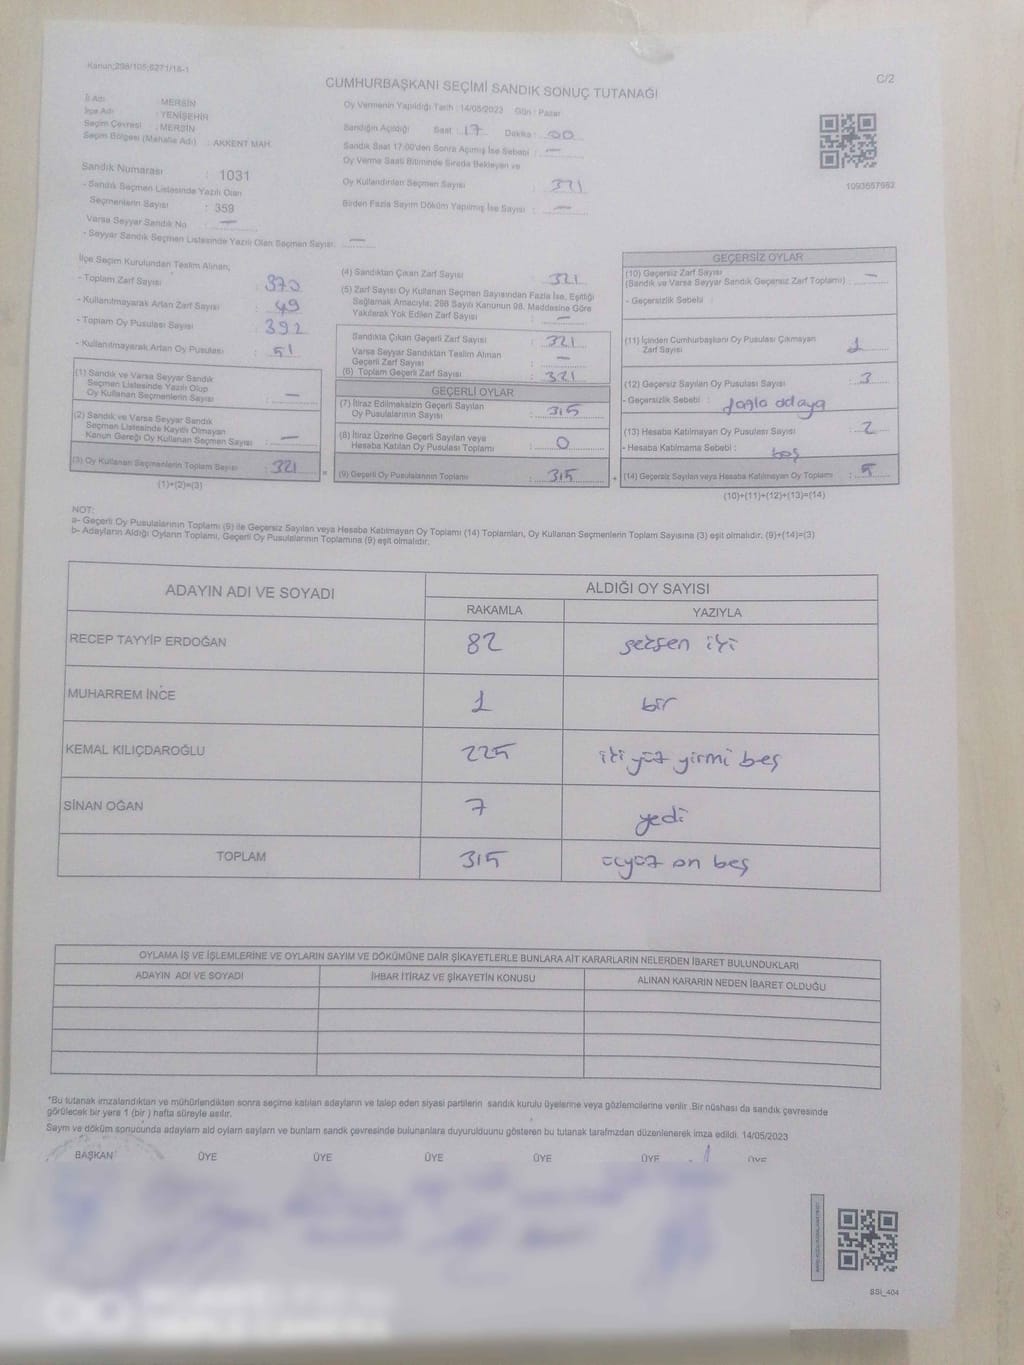 Kanun;298/105;6271/18-1
C/2
CUMHURBAŞKANI SEÇİMİ SANDIK SONUÇ TUTANAĞI
İl Adı : MERSİN
İlçe Adı : YENİŞEHİR
Seçim Çevresi : MERSİN
Seçim Bölgesi (Mahalle Adı) : AKKENT MAH.
Oy Vermenin Yapıldığı Tarih : 14/05/2023 Gün : Pazar
Sandığın Açıldığı Saat : 17 Dakika : 00
Sandık Saat 17:00'den Sonra Açılmış İse Sebebi : —
Oy Verme Saati Bitiminde Sırada Bekleyen ve
Oy Kullandırılan Seçmen Sayısı : 321
Birden Fazla Sayım Döküm Yapılmış İse Sayısı : —
1093657952
Sandık Numarası : 1031
- Sandık Seçmen Listesinde Yazılı Olan
Seçmenlerin Sayısı : 359
Varsa Seyyar Sandık No : —
- Seyyar Sandık Seçmen Listesinde Yazılı Olan Seçmen Sayısı : —
İlçe Seçim Kurulundan Teslim Alınan;
- Toplam Zarf Sayısı : 370
- Kullanılmayarak Artan Zarf Sayısı : 49
- Toplam Oy Pusulası Sayısı : 392
- Kullanılmayarak Artan Oy Pusulası : 51
(1) Sandık ve Varsa Seyyar Sandık
Seçmen Listesinde Yazılı Olup
Oy Kullanan Seçmenlerin Sayısı : —
(2) Sandık ve Varsa Seyyar Sandık
Seçmen Listesinde Kayıtlı Olmayan
Kanun Gereği Oy Kullanan Seçmen Sayısı : —
(3) Oy Kullanan Seçmenlerin Toplam Sayısı : 321
(1)+(2)=(3)
(4) Sandıktan Çıkan Zarf Sayısı : 321
(5) Zarf Sayısı Oy Kullanan Seçmen Sayısından Fazla İse, Eşitliği
Sağlamak Amacıyla; 298 Sayılı Kanunun 98. Maddesine Göre
Yakılarak Yok Edilen Zarf Sayısı : —
Sandıkta Çıkan Geçerli Zarf Sayısı : 321
Varsa Seyyar Sandıktan Teslim Alınan
Geçerli Zarf Sayısı : —
(6) Toplam Geçerli Zarf Sayısı : 321
GEÇERLİ OYLAR
(7) İtiraz Edilmeksizin Geçerli Sayılan
Oy Pusulalarının Sayısı : 315
(8) İtiraz Üzerine Geçerli Sayılan veya
Hesaba Katılan Oy Pusulası Toplamı : 0
(9) Geçerli Oy Pusulalarının Toplamı : 315
GEÇERSİZ OYLAR
(10) Geçersiz Zarf Sayısı
(Sandık ve Varsa Seyyar Sandık Geçersiz Zarf Toplamı) : —
- Geçersizlik Sebebi :
(11) İçinden Cumhurbaşkanı Oy Pusulası Çıkmayan
Zarf Sayısı : 1
(12) Geçersiz Sayılan Oy Pusulası Sayısı : 3
- Geçersizlik Sebebi : fazla adaya
(13) Hesaba Katılmayan Oy Pusulası Sayısı : 2
- Hesaba Katılmama Sebebi : boş
(14) Geçersiz Sayılan veya Hesaba Katılmayan Oy Toplamı : 5
(10)+(11)+(12)+(13)=(14)
NOT:
a- Geçerli Oy Pusulalarının Toplamı (9) ile Geçersiz Sayılan veya Hesaba Katılmayan Oy Toplamı (14) Toplamları, Oy Kullanan Seçmenlerin Toplam Sayısına (3) eşit olmalıdır. (9)+(14)=(3)
b- Adayların Aldığı Oyların Toplamı, Geçerli Oy Pusulalarının Toplamına (9) eşit olmalıdır.
ADAYIN ADI VE SOYADI ALDIĞI OY SAYISI
RAKAMLA YAZIYLA
RECEP TAYYİP ERDOĞAN 82 seksen iki
MUHARREM İNCE 1 bir
KEMAL KILIÇDAROĞLU 225 iki yüz yirmi beş
SİNAN OĞAN 7 yedi
TOPLAM 315 üçyüz on beş
OYLAMA İŞ VE İŞLEMLERİNE VE OYLARIN SAYIM VE DÖKÜMÜNE DAİR ŞİKAYETLERLE BUNLARA AİT KARARLARIN NELERDEN İBARET BULUNDUKLARI
ADAYIN ADI VE SOYADI İHBAR İTİRAZ VE ŞİKAYETİN KONUSU ALINAN KARARIN NEDEN İBARET OLDUĞU
*Bu tutanak imzalandıktan ve mühürlendikten sonra seçime katılan adayların ve talep eden siyasi partilerin sandık kurulu üyelerine veya gözlemcilerine verilir .Bir nüshası da sandık çevresinde
görülecek bir yere 1 (bir ) hafta süreyle asılır.
Sayım ve döküm sonucunda adayların ald oyların sayların ve bunların sandk çevresinde bulunanlara duyurulduunu gösteren bu tutanak tarafmzdan düzenlenerek imza edildi. 14/05/2023
BAŞKAN ÜYE ÜYE ÜYE ÜYE ÜYE ÜYE
SSI_404